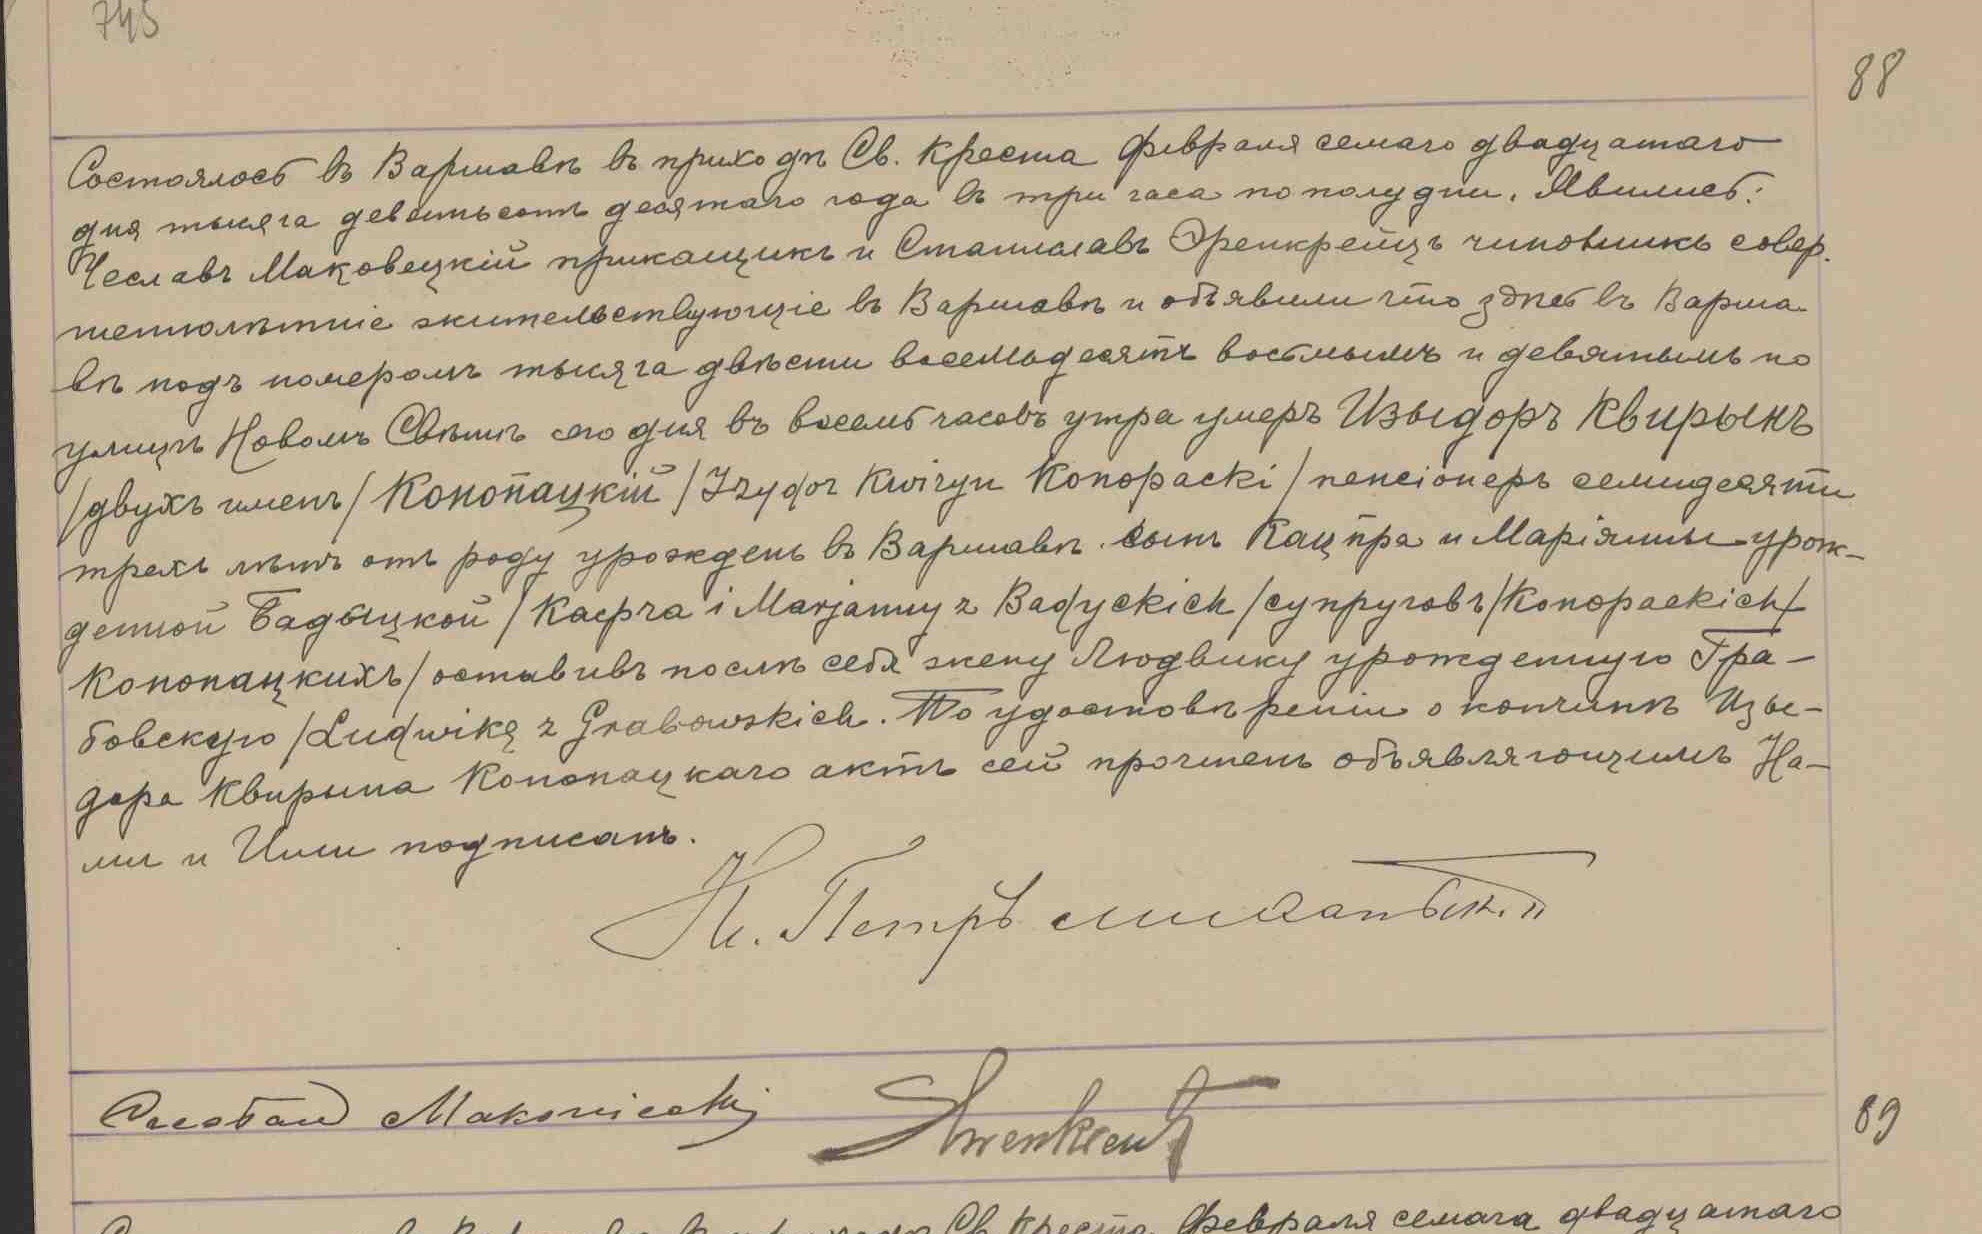 745
88
Состоялось въ Варшавѣ въ приходѣ Св. Креста февраля семаго двадцатаго
дня тысяча девятьсотъ десятаго года въ три часа пополудни. Явились:
Чеславъ Маковецкій прикащикъ и Станиславъ Эренкрейцъ чиновникъ совер.
шеннолѣтніе жительствующіе въ Варшавѣ и объявили что здѣсь въ Варша-
вѣ подъ номеромъ тысяча двѣсти восемьдесятъ восьмымъ и девятымъ по
улицѣ Новомъ Свѣтѣ сего дня въ восемь часовъ утра умеръ Изыдоръ Квирынъ
/двухъ именъ/ Конопацкій /Izydor Kwiryn Konopacki/ пенсіонеръ семидесяти
трехъ лѣтъ отъ роду урожденъ въ Варшавѣ. сынъ Кацпра и Маріянны урож-
денной Бадыцкой /Kacpra i Marjanny z Badyckich/ супруговъ /Konopackich/
Конопацкихъ/ оставивъ послѣ себя жену Людвику урожденную Гра-
бовскую /Ludwikę z Grabowskich. По удостовѣреніи о кончинѣ Изы-
дора Квирына Конопацкаго актъ сей прочтенъ объявляющимъ На-
ми и Ими подписанъ.
Кс. Петръ
Makowiecki
89
Св. Креста февраля семаго двадцатаго